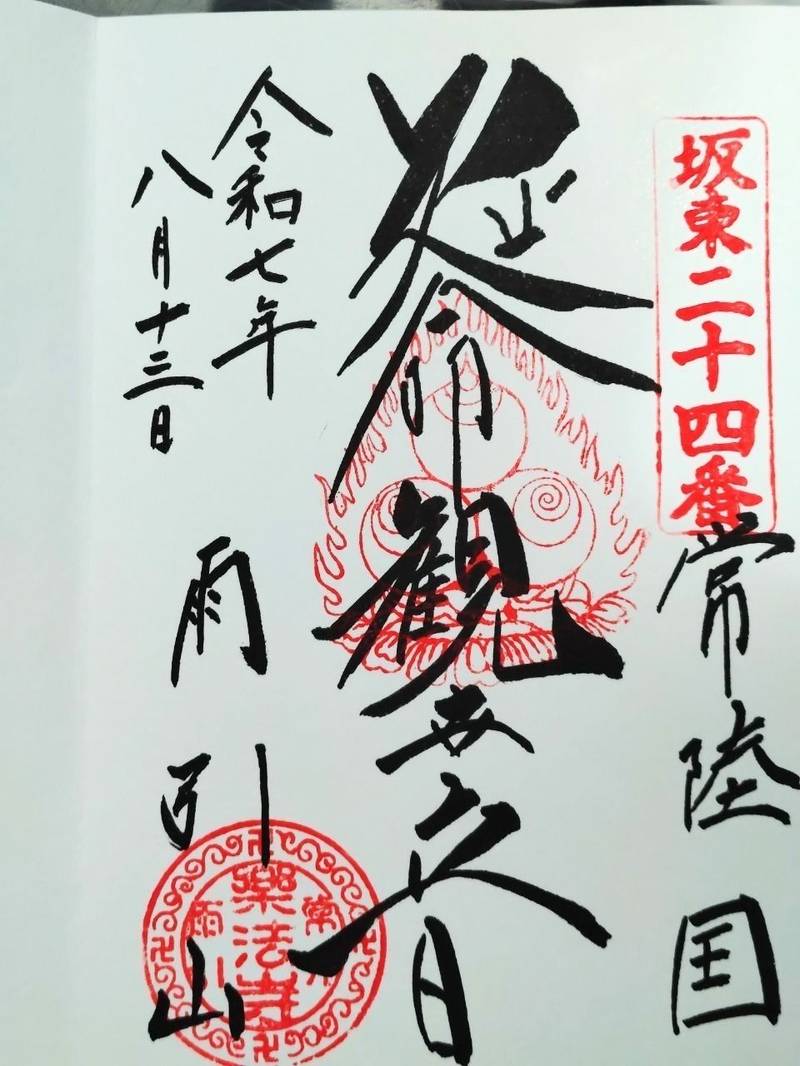 坂東二十四番
常陸国
延命観世音
令和七年
八月十三日
雨引山
樂法寺